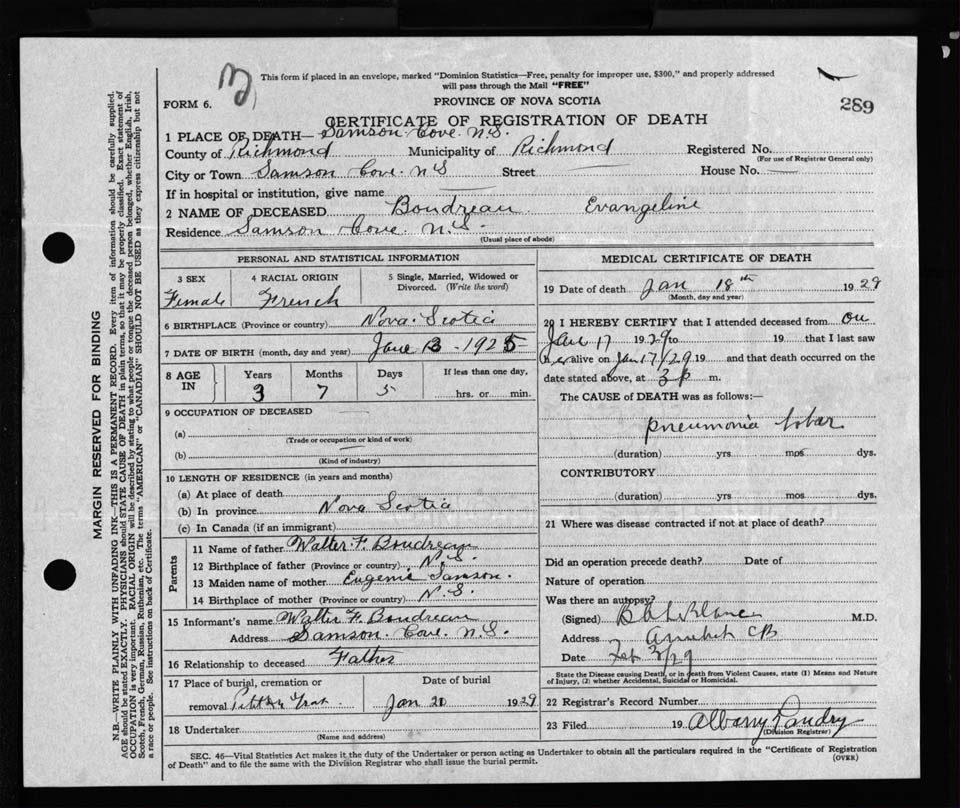 This form if placed in an envelope, marked "Dominion Statistics—Free, penalty for improper use, $300," and properly addressed
will pass through the Mail "FREE"
FORM 6.
PROVINCE OF NOVA SCOTIA
289
CERTIFICATE OF REGISTRATION OF DEATH
1 PLACE OF DEATH— Samson Cove. N.S.
County of Richmond Municipality of Richmond Registered No.
(For use of Registrar General only)
City or Town Samson Cove. N S Street House No.
If in hospital or institution, give name
2 NAME OF DECEASED Boudreau Evangeline
Residence Samson Cove N.S.
(Usual place of abode)
PERSONAL AND STATISTICAL INFORMATION
3 SEX 4 RACIAL ORIGIN 5 Single, Married, Widowed or Divorced. (Write the word)
Female French
6 BIRTHPLACE (Province or country) Nova Scotia
7 DATE OF BIRTH (month, day and year) June 13 - 1925
8 AGE IN Years Months Days If less than one day,
3 7 5 hrs. or min.
9 OCCUPATION OF DECEASED
(a)
(Trade or occupation or kind of work)
(b)
(Kind of industry)
10 LENGTH OF RESIDENCE (in years and months)
(a) At place of death
(b) In province Nova Scotia
(c) In Canada (if an immigrant)
Parents
11 Name of father Walter F. Boudreau
12 Birthplace of father (Province or country) N.S.
13 Maiden name of mother Eugenie Samson.
14 Birthplace of mother (Province or country) N.S.
15 Informant's name Walter F. Boudreau
Address Samson Cove N.S.
16 Relationship to deceased Father
17 Place of burial, cremation or Date of burial
removal Jan 20 1929
18 Undertaker
(Name and address)
MEDICAL CERTIFICATE OF DEATH
19 Date of death Jan 18th 1929
(Month, day and year)
20 I HEREBY CERTIFY that I attended deceased from on
Jan 17 1929 to 19 that I last saw
her alive on Jan 17/29 19 and that death occurred on the
date stated above, at 3 p m.
The CAUSE of DEATH was as follows:—
pneumonia lobar
(duration) yrs mos dys.
CONTRIBUTORY
(duration) yrs mos dys.
21 Where was disease contracted if not at place of death?
Did an operation precede death? Date of
Nature of operation
Was there an autopsy?
(Signed) M.D.
Address Arichat CB
Date Feb 3/29
State the Disease causing Death, or in death from Violent Causes, state (1) Means and Nature
of Injury, (2) whether Accidental, Suicidal or Homicidal.
22 Registrar's Record Number
23 Filed 19 Albany Landry
(Division Registrar)
SEC. 46—Vital Statistics Act makes it the duty of the Undertaker or person acting as Undertaker to obtain all the particulars required in the "Certificate of Registration
of Death" and to file the same with the Division Registrar who shall issue the burial permit.
(OVER)
MARGIN RESERVED FOR BINDING
N.B.—WRITE PLAINLY WITH UNFADING INK—THIS IS A PERMANENT RECORD. Every item of information should be carefully supplied.
AGE should be stated EXACTLY. PHYSICIANS should STATE CAUSE OF DEATH in plain terms, so that it may be properly classified. Exact statement of
OCCUPATION is very important. RACIAL ORIGIN will be described by stating to what people or tongue the deceased person belonged, whether English, Irish,
Scotch, French, German, Russian, Ruthenian, etc. The terms "AMERICAN" or "CANADIAN" SHOULD NOT BE USED as they express citizenship but not
a race or people. See instructions on back of Certificate.